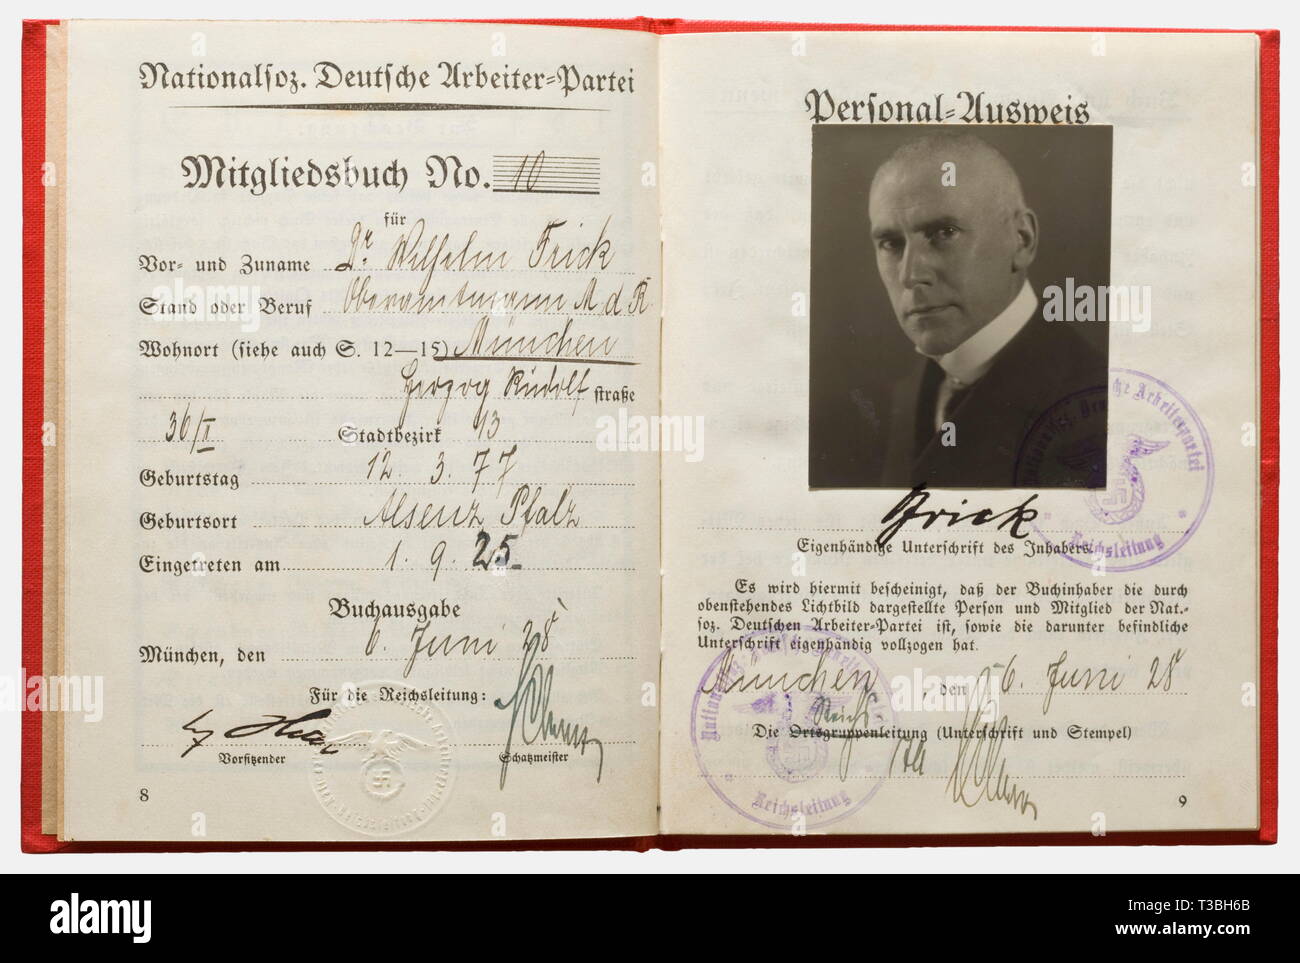 Nationalsoz. Deutsche Arbeiter-Partei
Mitgliedsbuch No. 10
für
Vor- und Zuname Dr. Wilhelm Frick
Stand oder Beruf Oberamtmann M d R
Wohnort (siehe auch S. 12—15) München
Herzog Rudolf straße
36/II Stadtbezirk 13
Geburtstag 12. 3. 77
Geburtsort Alsenz Pfalz
Eingetreten am 1. 9. 25
Buchausgabe
München, den 6. Juni 28
Für die Reichsleitung:
Vorsitzender Schatzmeister
8
Personal-Ausweis
Frick
Eigenhändige Unterschrift des Inhabers.
Es wird hiermit bescheinigt, daß der Buchinhaber die durch
obenstehendes Lichtbild dargestellte Person und Mitglied der Nat.-
soz. Deutschen Arbeiter-Partei ist, sowie die darunter befindliche
Unterschrift eigenhändig vollzogen hat.
München, den 6. Juni 28
Reichs
Die Ortsgruppenleitung (Unterschrift und Stempel)
9
Reichsleitung
Reichsleitung
alamy
Image ID: T3BH6B
www.alamy.com